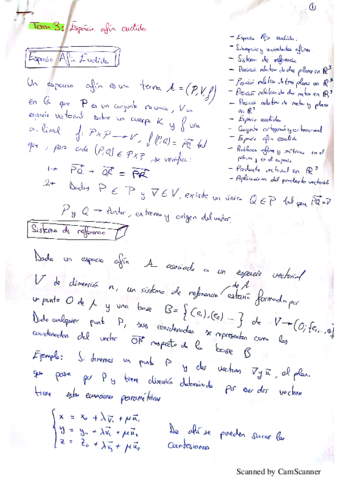 ①
Tema 3: Espacio afín euclideo
Espacio Afín Euclideo
- Espacio Afín euclideo.
- Sistema de referencia
- Posición relativa de dos planos en R³
- Posición relativa de recta y plano en R³
- Espacio euclideo
- Espacio afín euclideo
- Producto vectorial en R³
- Aplicaciones del producto vectorial
Un espacio afín es un terna A = (P, V, f)
en la que P es un conjunto no vacío, V un
espacio vectorial sobre un cuerpo K y f una
a. lineal f: P×P → V, f(P,Q) = PQ tal
que, para cada (P,Q) ∈ P×P, se verifica:
1- PQ + QR = PR
2- Dados P ∈ P y v ∈ V, existe un único Q ∈ P tal que PQ = v
P y Q → Puntos, extremo y origen del vector.
Sistema de referencia
Dado un espacio afín A asociado a un espacio vectorial
V de dimensión n, un sistema de referencia de A estará formado por
un punto O de A y una base B = {(e₁), (e₂) ... } de V → (O; {e₁, ..e
Dado cualquier punto P, sus coordenadas se representan como las
coordenadas del vector OP respecto de la base B
Ejemplo: Si tenemos un punto P y dos vectores v y u, el plano
que pasa por P y tiene dirección determinada por esos dos vectores
tiene estas ecuaciones paramétricas
x = x₀ + λv₁ + μu₁
y = y₀ + λv₂ + μu₂
z = z₀ + λv₃ + μu₃
De ahí se pueden sacar las
cartesianas
Scanned by CamScanner